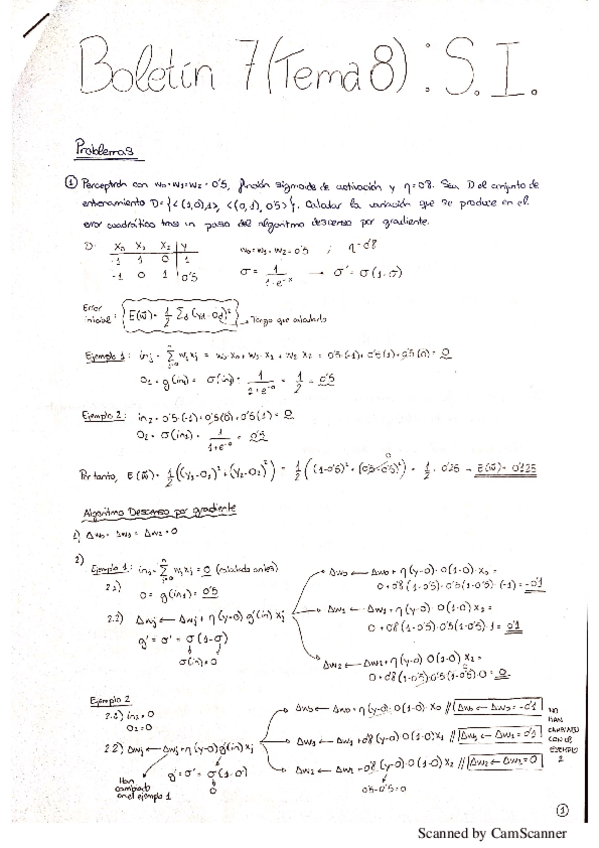 Boletín 7 (Tema 8) : S.I.
Problemas
① Perceptrón con w0=w1=w2=0'5, función sigmoide de activación y η=0'8. Sea D el conjunto de
entrenamiento D={<(1,0),1>, <(0,1), 0'5>}. Calcular la variación que se produce en el
error cuadrático tras un paso del algoritmo descenso por gradiente.
D: X0 X1 X2 y w0=w1=w2=0'5 ; η=0'8
-1 1 0 1
-1 0 1 0'5
σ = 1/(1+e^-x) → σ' = σ(1-σ)
Error inicial: E(w) = 1/2 Σd (yd - Od)² → Tengo que calcularlo
Ejemplo 1: in1 = Σ wj xj = w0 x0 + w1 x1 + w2 x2 = 0'5(-1)+0'5(1)+0'5(0) = 0
O1 = g(in1) = σ(in1) = 1/(1+e^-0) = 1/2 = 0'5
Ejemplo 2: in2 = 0'5·(-1)+0'5(0)+0'5(1) = 0
O2 = σ(in2) = 1/(1+e^-0) = 0'5
Por tanto, E(w) = 1/2((y1-O1)²+(y2-O2)²) = 1/2((1-0'5)²+(0'5-0'5)²) = 1/2 · 0'25 → E(w) = 0'125
Algoritmo Descenso por gradiente
1) Δw0 = Δw1 = Δw2 = 0
2)
Ejemplo 1: in1 = Σ wj xj = 0 (calculado antes)
2.1) O = g(in1) = 0'5
2.2) Δwj ← Δwj + η(y-O) g'(in) xj
g' = σ' = σ(1-σ)
σ(in)=O
Δw0 ← Δw0 + η(y-O) O(1-O) x0 =
0+0'8(1-0'5)·0'5(1-0'5)·(-1) = -0'1
Δw1 ← Δw1 + η(y-O) O(1-O) x1 =
0+0'8(1-0'5)·0'5(1-0'5)·1 = 0'1
Δw2 ← Δw2 + η(y-O) O(1-O) x2 =
0+0'8(1-0'5)·0'5(1-0'5)·0 = 0
Ejemplo 2
2.1) in2 = 0
2.2) Δwj ← Δwj + η(y-O) g'(in) xj
Han cambiado en el ejemplo 1
g' = σ' = σ(1-σ)
Δw0 ← Δw0 + η(y-O) O(1-O) x0 // Δw0 ← Δw0 = -0'1
Δw1 ← Δw1 + 0'8(y-O) O(1-O) x1 // Δw1 ← Δw1 = 0'1
Δw2 ← Δw2 + 0'8(y-O) O(1-O) x2 // Δw2 ← Δw2 = 0
0'5-0'5=0
NO
HAN
CAMBIADO
CON EL
EJEMPLO
①
Scanned by CamScanner